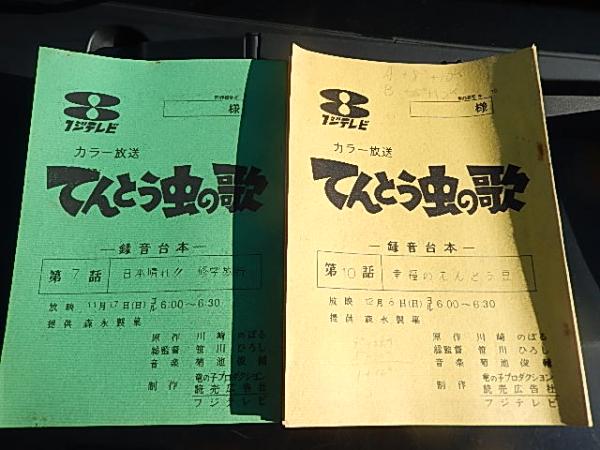 8
フジテレビ
様
カラー放送
てんとう虫の歌
―録音台本―
第7話 日本晴れ!! 修学旅行
放映 11月17日(日) ヨル6:00〜6:30
提供 森永製菓
原作 川崎のぼる
総監督 笹川ひろし
音楽 菊池俊輔
制作 竜の子プロダクション
読売広告社
フジテレビ
8
フジテレビ
様
カラー放送
てんとう虫の歌
―録音台本―
第10話 幸福のえんとう豆
放映 12月8日(日) ヨル6:00〜6:30
提供 森永製菓
原作 川崎のぼる
総監督 笹川ひろし
音楽 菊池俊輔
制作 竜の子プロダクション
読売広告社
フジテレビ